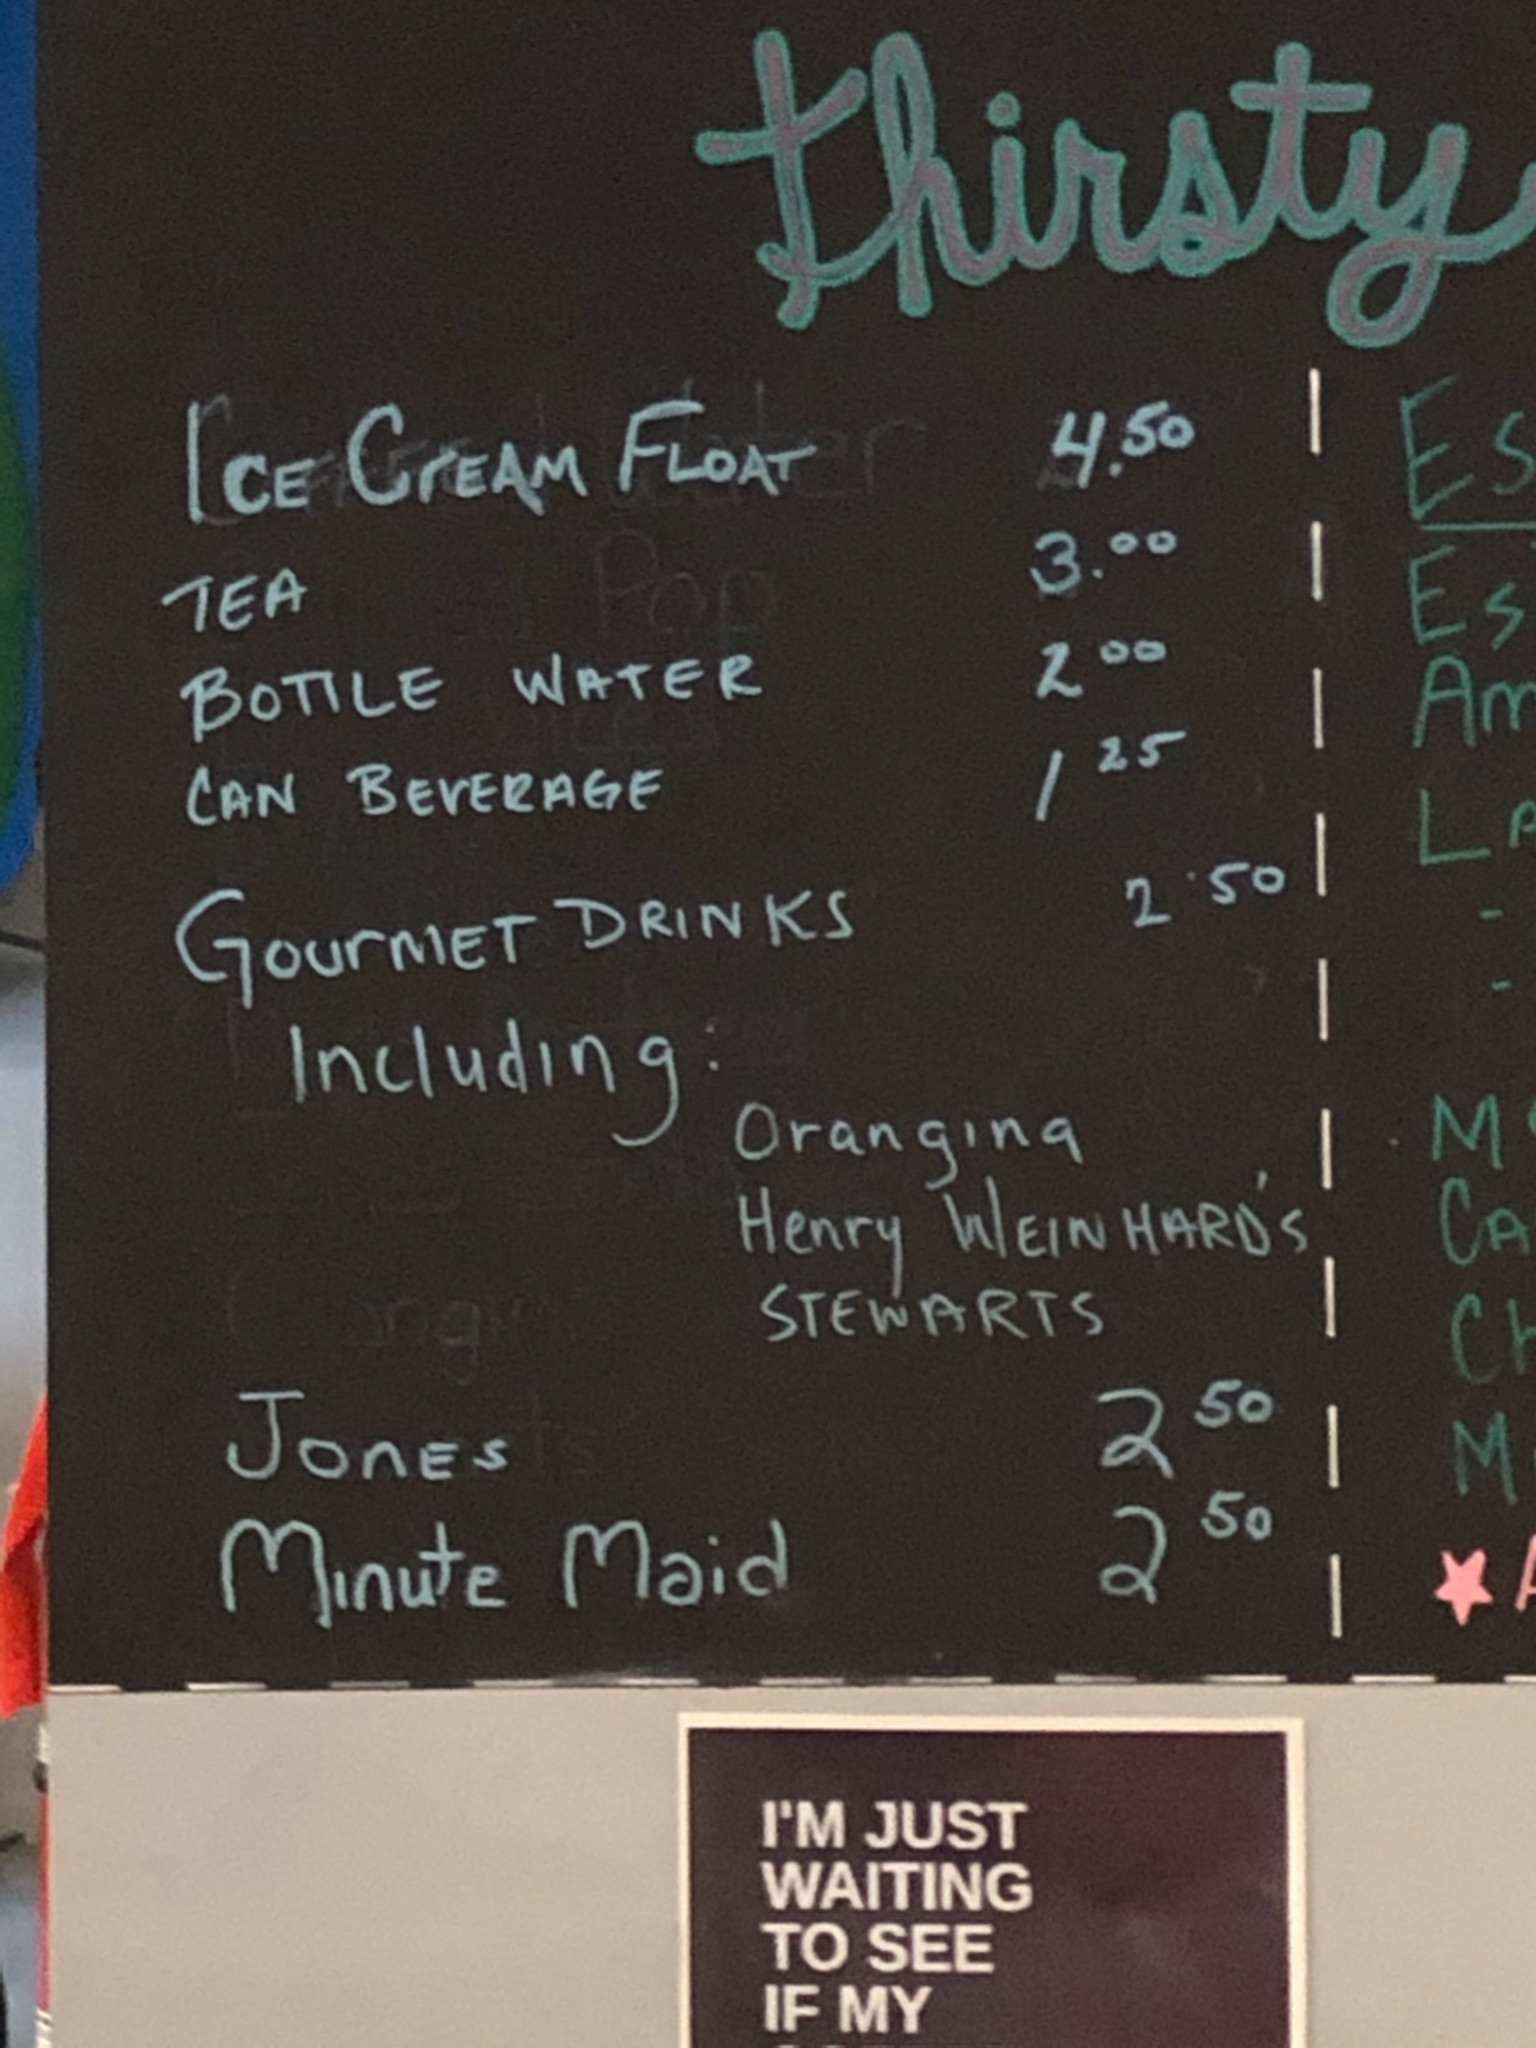 thirsty
ICE CREAM FLOAT 4.50
TEA 3.00
BOTTLE WATER 2 00
CAN BEVERAGE 1 25
GOURMET DRINKS 2.50
Including:
Orangina
Henry WEINHARD'S
STEWARTS
JONES 2 50
Minute Maid 2 50
Es
Es
Am
LA
-
-
CA
CH
M
★ A
I'M JUST
WAITING
TO SEE
IF MY